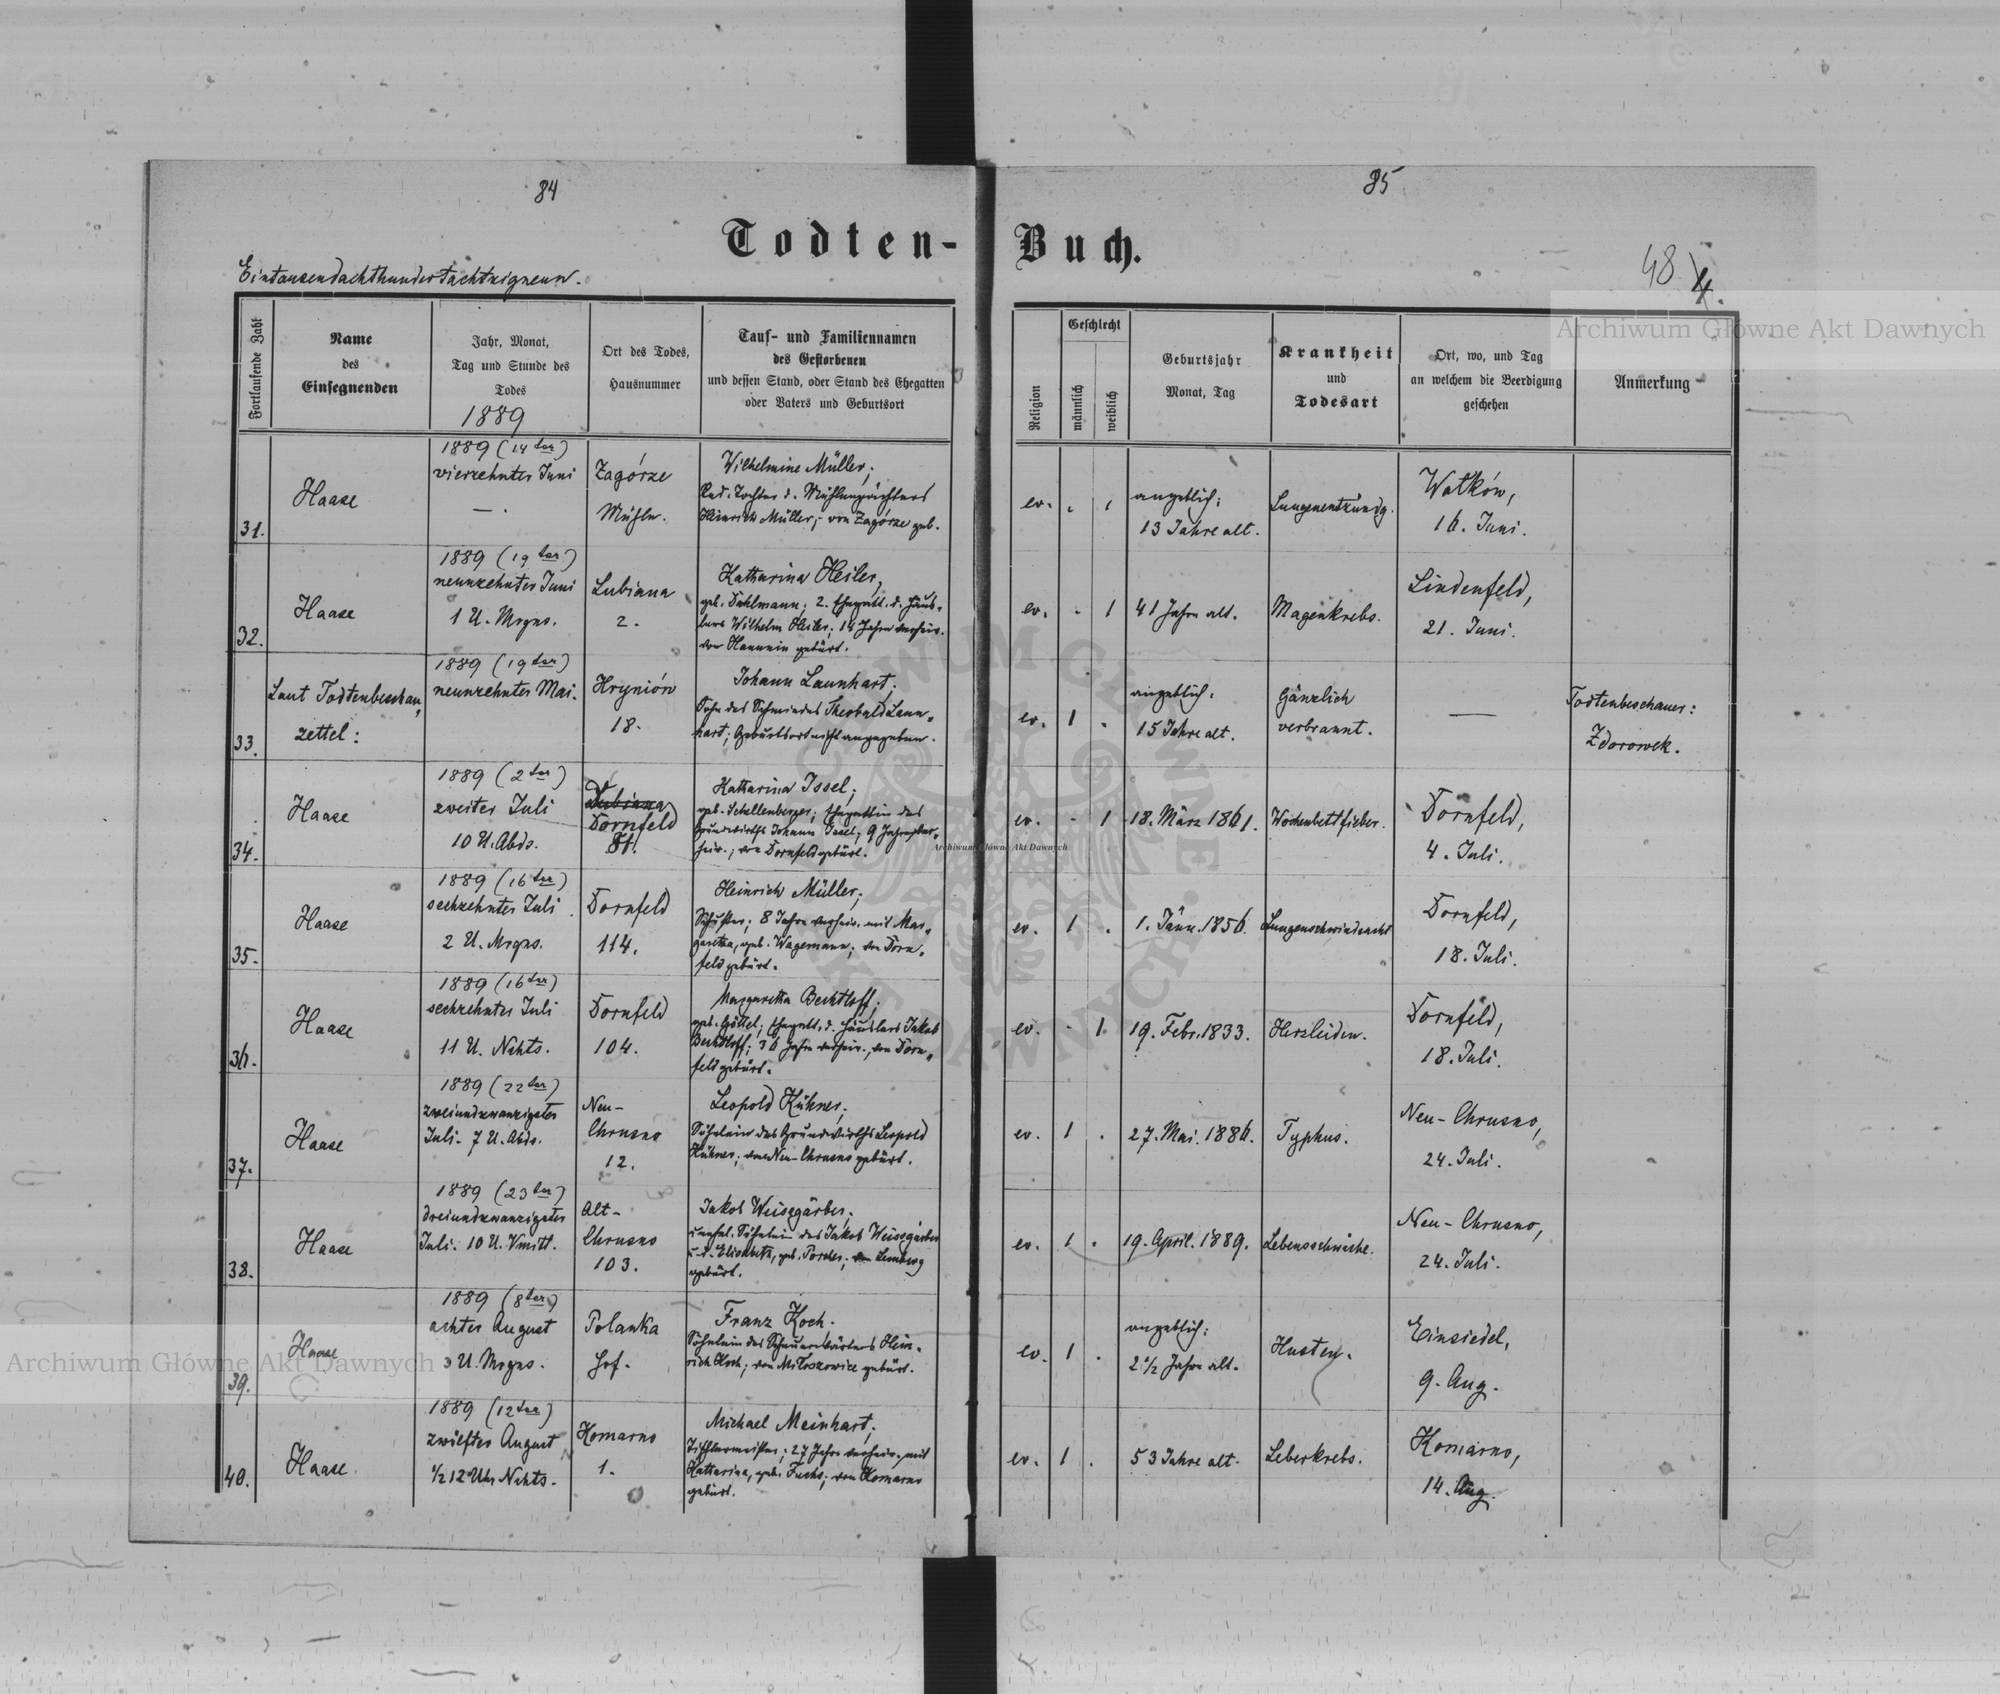 84
85
Todten-
Buch.
Eintausendachthundertachtzigneun.
48
4.
Fortlaufende Zahl
Name
des
Einsegnenden
Jahr, Monat,
Tag und Stunde des
Todes
1889
Ort des Todes,
Hausnummer
Tauf- und Familiennamen
des Gestorbenen
und dessen Stand, oder Stand des Ehegatten
oder Vaters und Geburtsort
Religion
Geschlecht
männlich
weiblich
Geburtsjahr
Monat, Tag
Krankheit
und
Todesart
Ort, wo, und Tag
an welchem die Beerdigung
geschehen
Anmerkung
31.
Haase
1889 (14ter)
vierzehnter Juni
— .
Zagórze
Mühle.
Wilhelmine Müller;
Tochter d. Mühlenpächters
Heinrich Müller; von Zagórze geb.
ev. . 1
angeblich:
13 Jahre alt.
Lungenentzündg.
Wołków,
16. Juni.
32.
Haase
1889 (19ter)
neunzehnter Juni
1 U. Mrgns.
Lubiana
2.
Katharina Heiler,
geb. Dahlmann; 2. Ehegatt. d. Häus-
lers Wilhelm Heiler; 14 Jahre verheir.
von gebürt.
ev. . 1
41 Jahre alt.
Magenkrebs.
Lindenfeld,
21. Juni.
33.
Laut Todtenbeschau-
zettel:
1889 (19ter)
neunzehnter Mai.
Hryniów
18.
Johann Launhart;
Sohn des Schmiedes Theobald Laun-
hart; Geburtsort nicht angegeben.
ev. 1 .
angeblich:
15 Jahre alt.
Gänzlich
verbrannt.
—
Todtenbeschauer:
Zdorowek.
34.
Haase
1889 (2ter)
zweiter Juli
10 U. Abds.
Lubiana
Dornfeld
81.
Katharina Issel;
geb. Schellenberger; Ehegattin des
Grundwirths Johann Issel; 9 Jahre ver-
heir.; von Dornfeld gebürt.
ev. . 1
18. März 1861.
Wochenbettfieber.
Dornfeld,
4. Juli.
35.
Haase
1889 (16ter)
sechzehnter Juli
2 U. Mrgns.
Dornfeld
114.
Heinrich Müller;
Schuster; 8 Jahre verheir. mit Mar-
garetha, geb. Wagemann; von Dorn-
feld gebürt.
ev. 1 .
1. Jänn. 1856.
Lungenschwindsucht
Dornfeld,
18. Juli.
36.
Haase
1889 (16ter)
sechzehnter Juli
11 U. Nchts.
Dornfeld
104.
Margaretha Bechtloff;
geb. Göttel; Ehegatt. d. Häuslers Jakob
Bechtloff; 36 Jahre verheir., von Dorn-
feld gebürt.
ev. . 1.
19. Febr. 1833.
Herzleiden.
Dornfeld,
18. Juli.
37.
Haase
1889 (22ter)
zweiundzwanzigster
Juli. 7 U. Abds.
Neu-
Chrusno
12.
Leopold Kühner;
Söhnlein des Grundwirths Leopold
Kühner; von Neu-Chrusno gebürt.
ev. 1 .
27. Mai. 1886.
Typhus.
Neu-Chrusno,
24. Juli.
38.
Haase
1889 (23ter)
dreiundzwanzigster
Juli. 10 U. Vmitt.
Alt-
Chrusno
103.
Jakob Weissgärber;
unehel. Söhnlein des Jakob Weissgärber
u. d. Elisabeta, geb. Porcher; von Lemberg
gebürt.
ev. 1 .
19. April. 1889.
Lebensschwäche.
Neu-Chrusno,
24. Juli.
39.
Haase
1889 (8ter)
achter August
3 U. Mrgns.
Polanka
Hof.
Franz Koch.
Söhnlein des Scheuerwärters Hein-
rich Koch; von Miłoszowice gebürt.
ev. 1 .
angeblich:
2 1/2 Jahre alt.
Husten.
Einsiedel,
9. Aug.
40.
Haase
1889 (12ter)
zwölfter August
1/2 12 Uhr Nchts.
Komarno
1.
Michael Meinhart;
Tischlermeister; 27 Jahre verheir. mit
Katharina, geb. Fuchs; von Komarno
gebürt.
ev. 1 .
53 Jahre alt.
Leberkrebs.
Komarno,
14. Aug.
Archiwum Główne Akt Dawnych
Archiwum Główne Akt Dawnych
Archiwum Główne Akt Dawnych